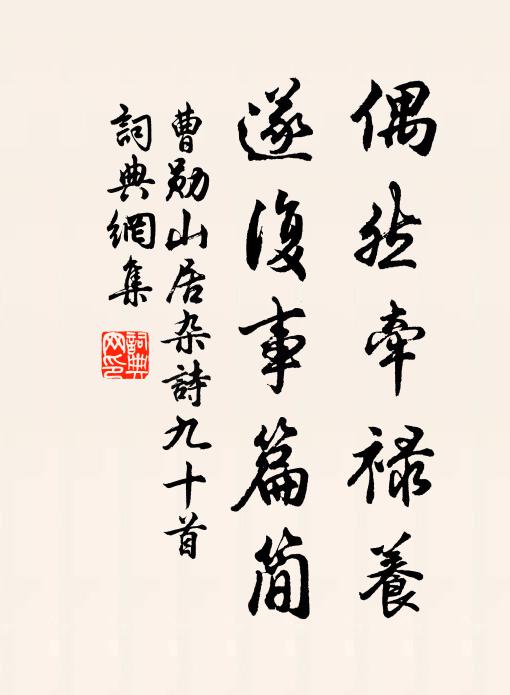 偶然牵禄養
遂復事篇简
曹勋山居杂詩九十首
詞典網集
詞典網印